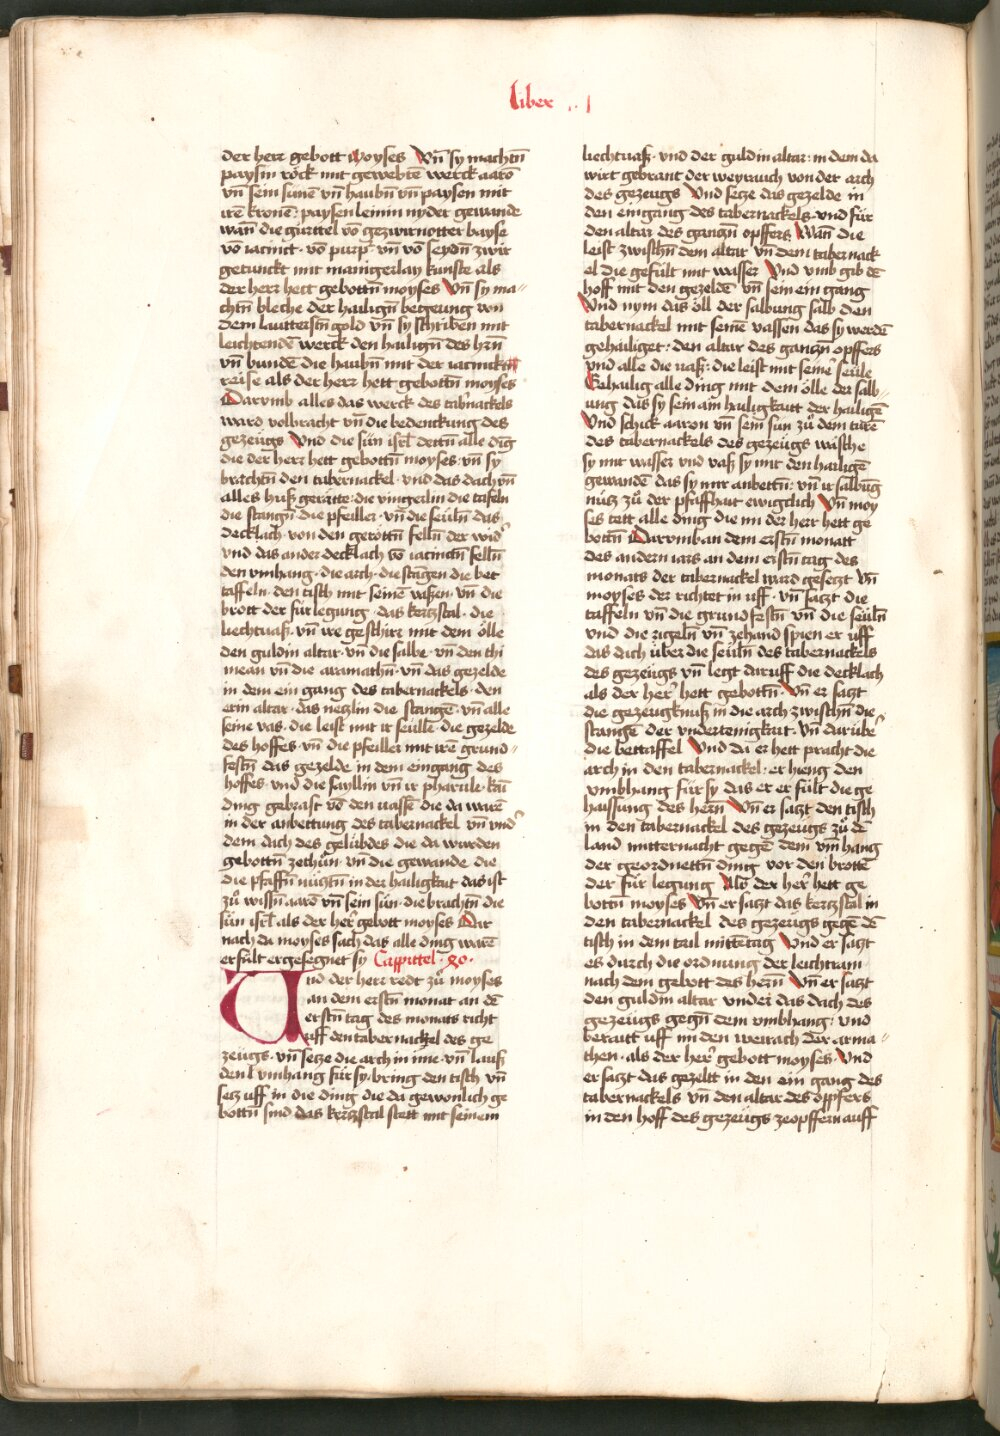 liber
der herr gebott moyses Vn̄ sy machtn̄
paysin röck mit gewebtē werck aarō
vn̄ sein sunē vn̄ haubn̄ vn̄ paysen mit
irē kronē: paysen leinin nyder gewande
wan̄ die gürttel vō gezwirnotter baysē
vō iacinct · vō purp̄ · vn̄ vō seydn̄ zwir
getunckt mit manigerlay kunste als
der herr hett gebottn̄ moyses Vn̄ sy ma-
chtn̄ bleche der hailign̄ betgerung von
dem lautterstn̄ gold vn̄ sy schriben mit
leichtendē werck den hailign̄ des hrn̄
vn̄ bundē die haubn̄ mit der iacinckt
reise als der herr hett gebottn̄ moyses
Darvmb alles das werck des tab̄nackels
ward volbracht vn̄ die bedenckung des
gezeügs Vnd die sün isrl̄ dettn̄ alle dīg
die der herr hett gebottn̄ moyses · vn̄ sy
brachtn̄ den tabernackel · vnd das dach vn̄
alles huß gerätte · die vingerlin die tafeln
die stangn̄ die pfeiller · vn̄ die seüln̄ das
decklach · von den gerötn̄ felln̄ der wid̄
vnd das ander decklach vō iacinctn̄ felln̄
den vmhang · die arch · die stāgen die bet
taffeln · den tisch mit seinē vaßen · vn̄ die
brott der für legung · das kertzstal · die
liechtuaß · vn̄ ire geschirr mit dem ölle
den guldin altar · vn̄ die salbe · vn̄ den thi
mean vn̄ die aramathn̄ · vn̄ das gezelde
in dem ein gang des tabernackels · den
erin altar · das netzlin die stangē · vn̄ alle
seine vas · die leist mit ir seüllē · die gezelde
des hoffes · vn̄ die pfeiller mit irē grund-
festn̄ das gezelde in dem eingang des
hoffes · vnd die sayllin vn̄ ir pharule · kain
ding gebrast vō den vassē die da warē
in der anbettung des tabernackel vn̄ vnd̄
dem dach des gelübdes die da wurden
gebottn̄ zethün · vn̄ die gewande die
die pfaffn̄ nützn̄ in der hailigkait das ist
zů wissn̄ aarō vn̄ sein sün · die brachtn̄ die
sün isrl̄ als der her̄ gebott moyses Dar
nach da moyses sach das alle ding warē
erfült er gesegnet sy Cappittel · xl ·
Vnd der herr redt zů moyses
an dem erstn̄ monat an dē
erstn̄ tag des monats richt
uff den tabernackel des ge
zeügs · vn̄ setze die arch in ine · vn̄ lauß
den vmhang für sy · bring den tisch vn̄
setz uff in die ding die da gewonlich ge
bottn̄ sind das kertzstal stett mit seinem
liechtuaß · vnd der guldin altar: in dem da
wirt gebrant der weyrauch von der arch
des gezeugs Vnd setze das gezelde in
den eingang des tabernackels · vnd für
den altar des gantzn̄ opffers Wan̄ die
leist zwischn̄ dem altar vn̄ dem tabernack
el die gefült mit wasser Vnd vmb gib dē
hoff mit den gezeldē vn̄ sein ein gang
Vnd nym das öll der salbung salb den
tabernackel mit seinē vassen das sy werdē
gehailiget: den altar des gantzn̄ opffers
vnd alle die vaß: die leist mit seinē seüle
Gehailig alle ding mit dem ölle der salb
ung das sy sein ain hailigkaitt der hailigē
Vnd schick aaron vn̄ sein sun zů dem türē
des tabernackels des gezeügs wäsche
sy mit wasser vnd vaß sy mit den hailigē
gewandē das sy mir anbettn̄: vn̄ ir salbūg
nütz zů der pfaffhait ewigclich Vn̄ moy
ses tett alle ding die im der herr hett ge
bottn̄ Darvmb an dem erstn̄ monatt
des andern iars an dem erstn̄ tag des
monats der tabernackel ward gesetzt vn̄
moyses der richtet in uff · vn̄ satzt die
taffeln vn̄ die grundfestn̄ vn̄ die seüln̄
vnd die rigeln̄ vn̄ zehand spien er uff
das dach über die seüln̄ des tabernackels
des gezeügs vn̄ legt daruff die decklach
als der her̄ hett gebottn̄ · Vn̄ er satzt
die gezeugknuß in die arch zwischn̄ die
stangē der vndertenigkait · vn̄ darübē
die bettaffel Vnd da er hett pracht die
arch in den tabernackel: er hieng den
vmbhang für sy das er er fült die ge
haissung des hern̄ Vn̄ er satzt den tisch
in den tabernackel des gezeügs zů dē
land mitternacht gegē dem vm̄ hang
der geordnettn̄ ding vor den brottē
der für legung Als der her̄ hett ge
bottn̄ moyses Vn̄ er satzt das kertzstal in
den tabernackel des gezeügs gegē dē
tisch in dem tail mittētag Vnd er satzt
es durch die ordnung der leichtram
nach dem gebott des hern̄ Vn̄ er satzt
den guldin altar vnder das dach des
gezeügs gegn̄ dem vmbhang: vnd
berautt uff im den weirach der arma-
then · als der her̄ gebott moyses · Vnd
er satzt das gezeltt in den ein gang des
tabernackels vn̄ den altar des opffers
in den hoff des gezeügs zeopffern auff